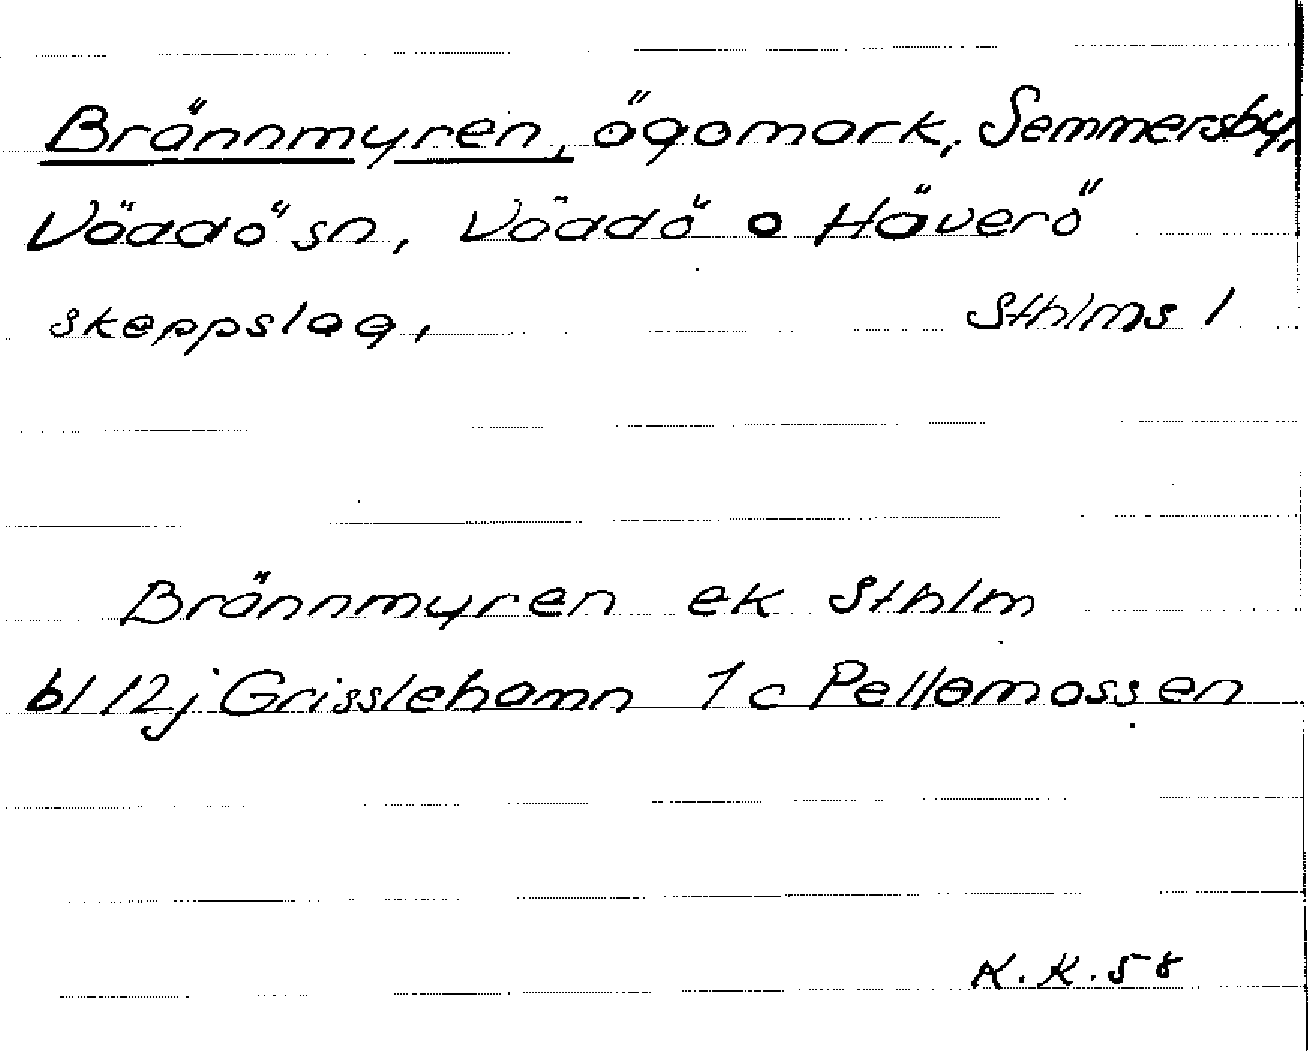 Brännmyren, ägomark, Semmersby,
Väddö sn, Väddö o Häverö
skeppslag, Sthlms l
Brännmyren ek Sthlm
bl 12j Grisslehamn 1c Pellamossen
K.K. 58